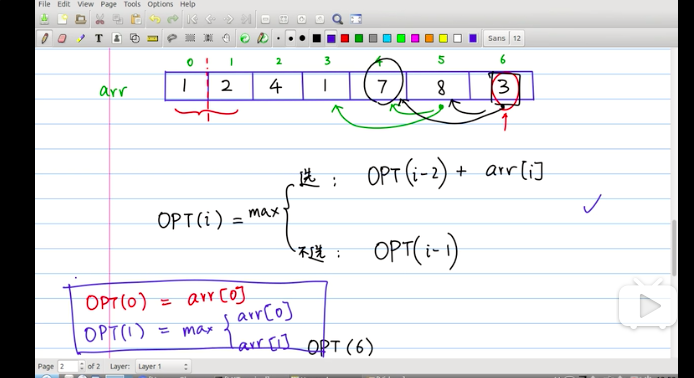 File Edit View Page Tools Options Help
Sans 12
0 1 2 3 4 5 6
arr 1 2 4 1 7 8 3
选: OPT(i-2) + arr[i]
OPT(i) = max
不选: OPT(i-1)
OPT(0) = arr[0]
OPT(1) = max { arr[0]
arr[1]
OPT(6)
Page 2 of 2 Layer: Layer 1